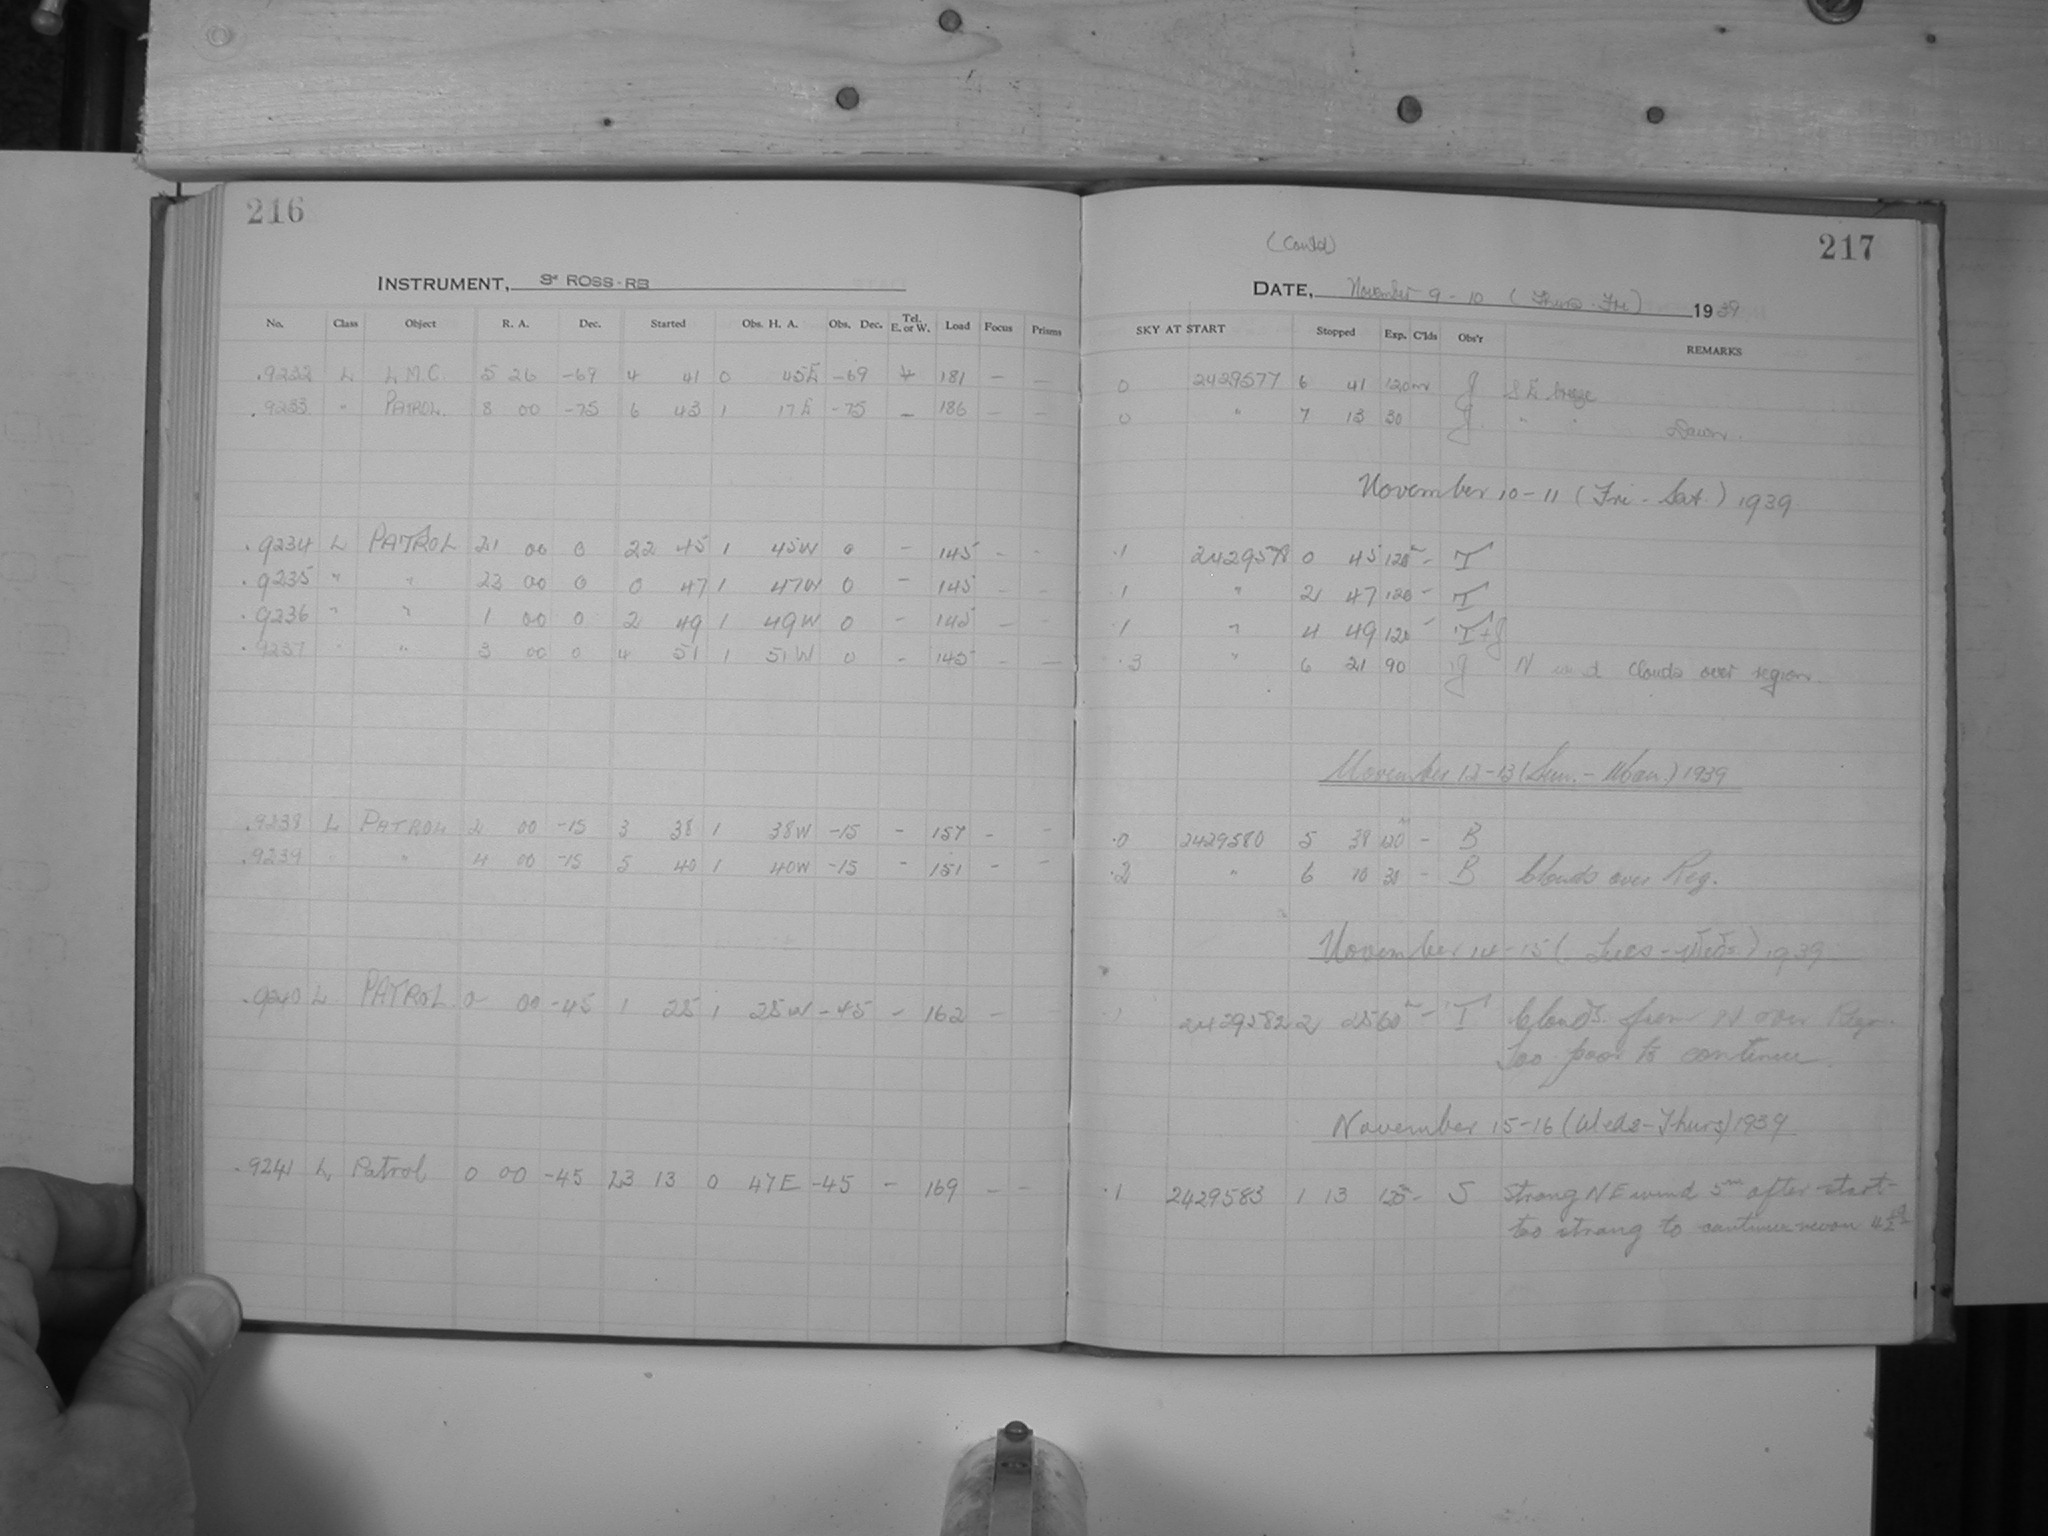 216
INSTRUMENT, 3" ROSS-RB
No. Class Object R. A. Dec. Started Obs. H. A. Obs. Dec. Tel. E. or W. Load Focus Prisms
.9232 L L.M.C. 5 26 -69 4 41 0 45E -69 181 – –
.9233 " PATROL. 8 00 -75 6 43 1 17E -75 – 186 – –
.9234 L PATROL 21 00 0 22 45 1 45W 0 – 145 – –
.9235 " " 23 00 0 0 47 1 47W 0 – 145 – –
.9236 " " 1 00 0 2 49 1 49W 0 – 145 – –
.9237 " " 3 00 0 4 51 1 51W 0 – 145 – –
.9238 L PATROL 2 00 -15 3 38 1 38W -15 – 157 – –
.9239 " 4 00 -15 5 40 1 40W -15 – 151 – –
.9240 L PATROL 0 00 -45 1 28 1 28W -45 – 162 – –
.9241 L Patrol 0 00 -45 23 13 0 47E -45 – 169 – –
(Contd)
217
DATE, November 9-10 (Thurs-Fri) 1939
SKY AT START Stopped Exp. C'lds Obs'r REMARKS
0 2429577 6 41 120m J S E breeze
0 " 7 13 30 J " " Dawn.
November 10-11 (Fri-Sat.) 1939
.1 2429578 0 45 120m – T
.1 " 2 47 120 – T
.1 " 4 49 120 – T+J
.3 " 6 21 90 J N wind clouds over region.
November 12-13 (Sun.-Mon.) 1939
.0 2429580 5 38 120m – B
.2 " 6 10 30 – B Clouds over Reg.
November 14-15 (Tues-Weds) 1939
.1 2429582 2 28 60m – T Clouds from over Region
Too poor to continue
November 15-16 (Weds-Thurs) 1939
.1 2429583 1 13 – S Strong NE wind 5m after start-
too strong to continue-